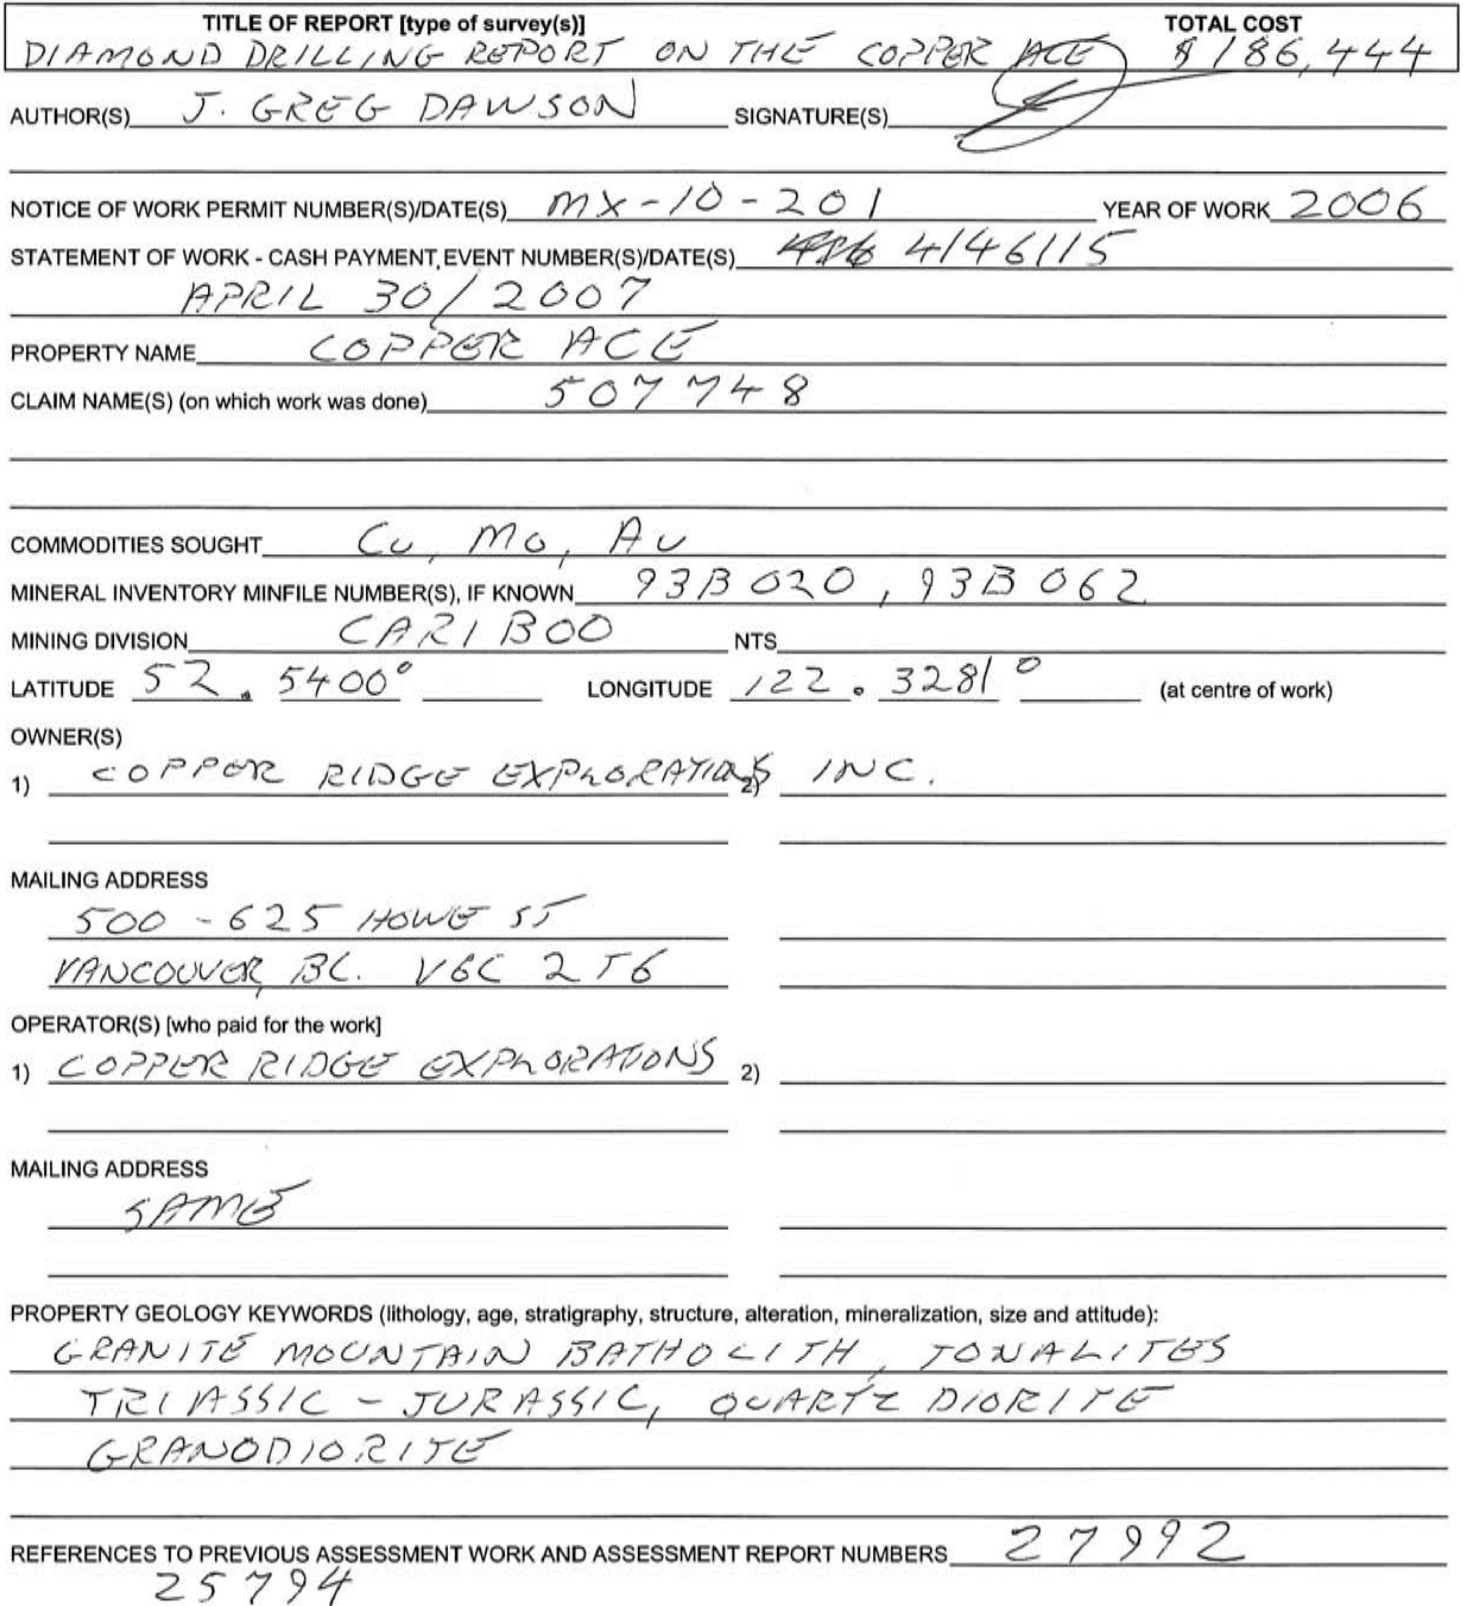 TITLE OF REPORT [type of survey(s)] TOTAL COST
DIAMOND DRILLING REPORT ON THE COPPER ACE $186,444
AUTHOR(S) J. GREG DAWSON SIGNATURE(S)
NOTICE OF WORK PERMIT NUMBER(S)/DATE(S) MX-10-201 YEAR OF WORK 2006
STATEMENT OF WORK - CASH PAYMENT, EVENT NUMBER(S)/DATE(S) 4146115
APRIL 30/2007
PROPERTY NAME COPPER ACE
CLAIM NAME(S) (on which work was done) 507748
COMMODITIES SOUGHT Cu, Mo, Au
MINERAL INVENTORY MINFILE NUMBER(S), IF KNOWN 93B 020, 93B 062
MINING DIVISION CARIBOO NTS
LATITUDE 52.5400° LONGITUDE 122.3281° (at centre of work)
OWNER(S)
1) COPPER RIDGE EXPLORATIONS 2) INC.
MAILING ADDRESS
500-625 HOWE ST
VANCOUVER, BC. V6C 2T6
OPERATOR(S) [who paid for the work]
1) COPPER RIDGE EXPLORATIONS 2)
MAILING ADDRESS
SAME
PROPERTY GEOLOGY KEYWORDS (lithology, age, stratigraphy, structure, alteration, mineralization, size and attitude):
GRANITE MOUNTAIN BATHOLITH, TONALITES
TRIASSIC - JURASSIC, QUARTZ DIORITE
GRANODIORITE
REFERENCES TO PREVIOUS ASSESSMENT WORK AND ASSESSMENT REPORT NUMBERS 27992
25794